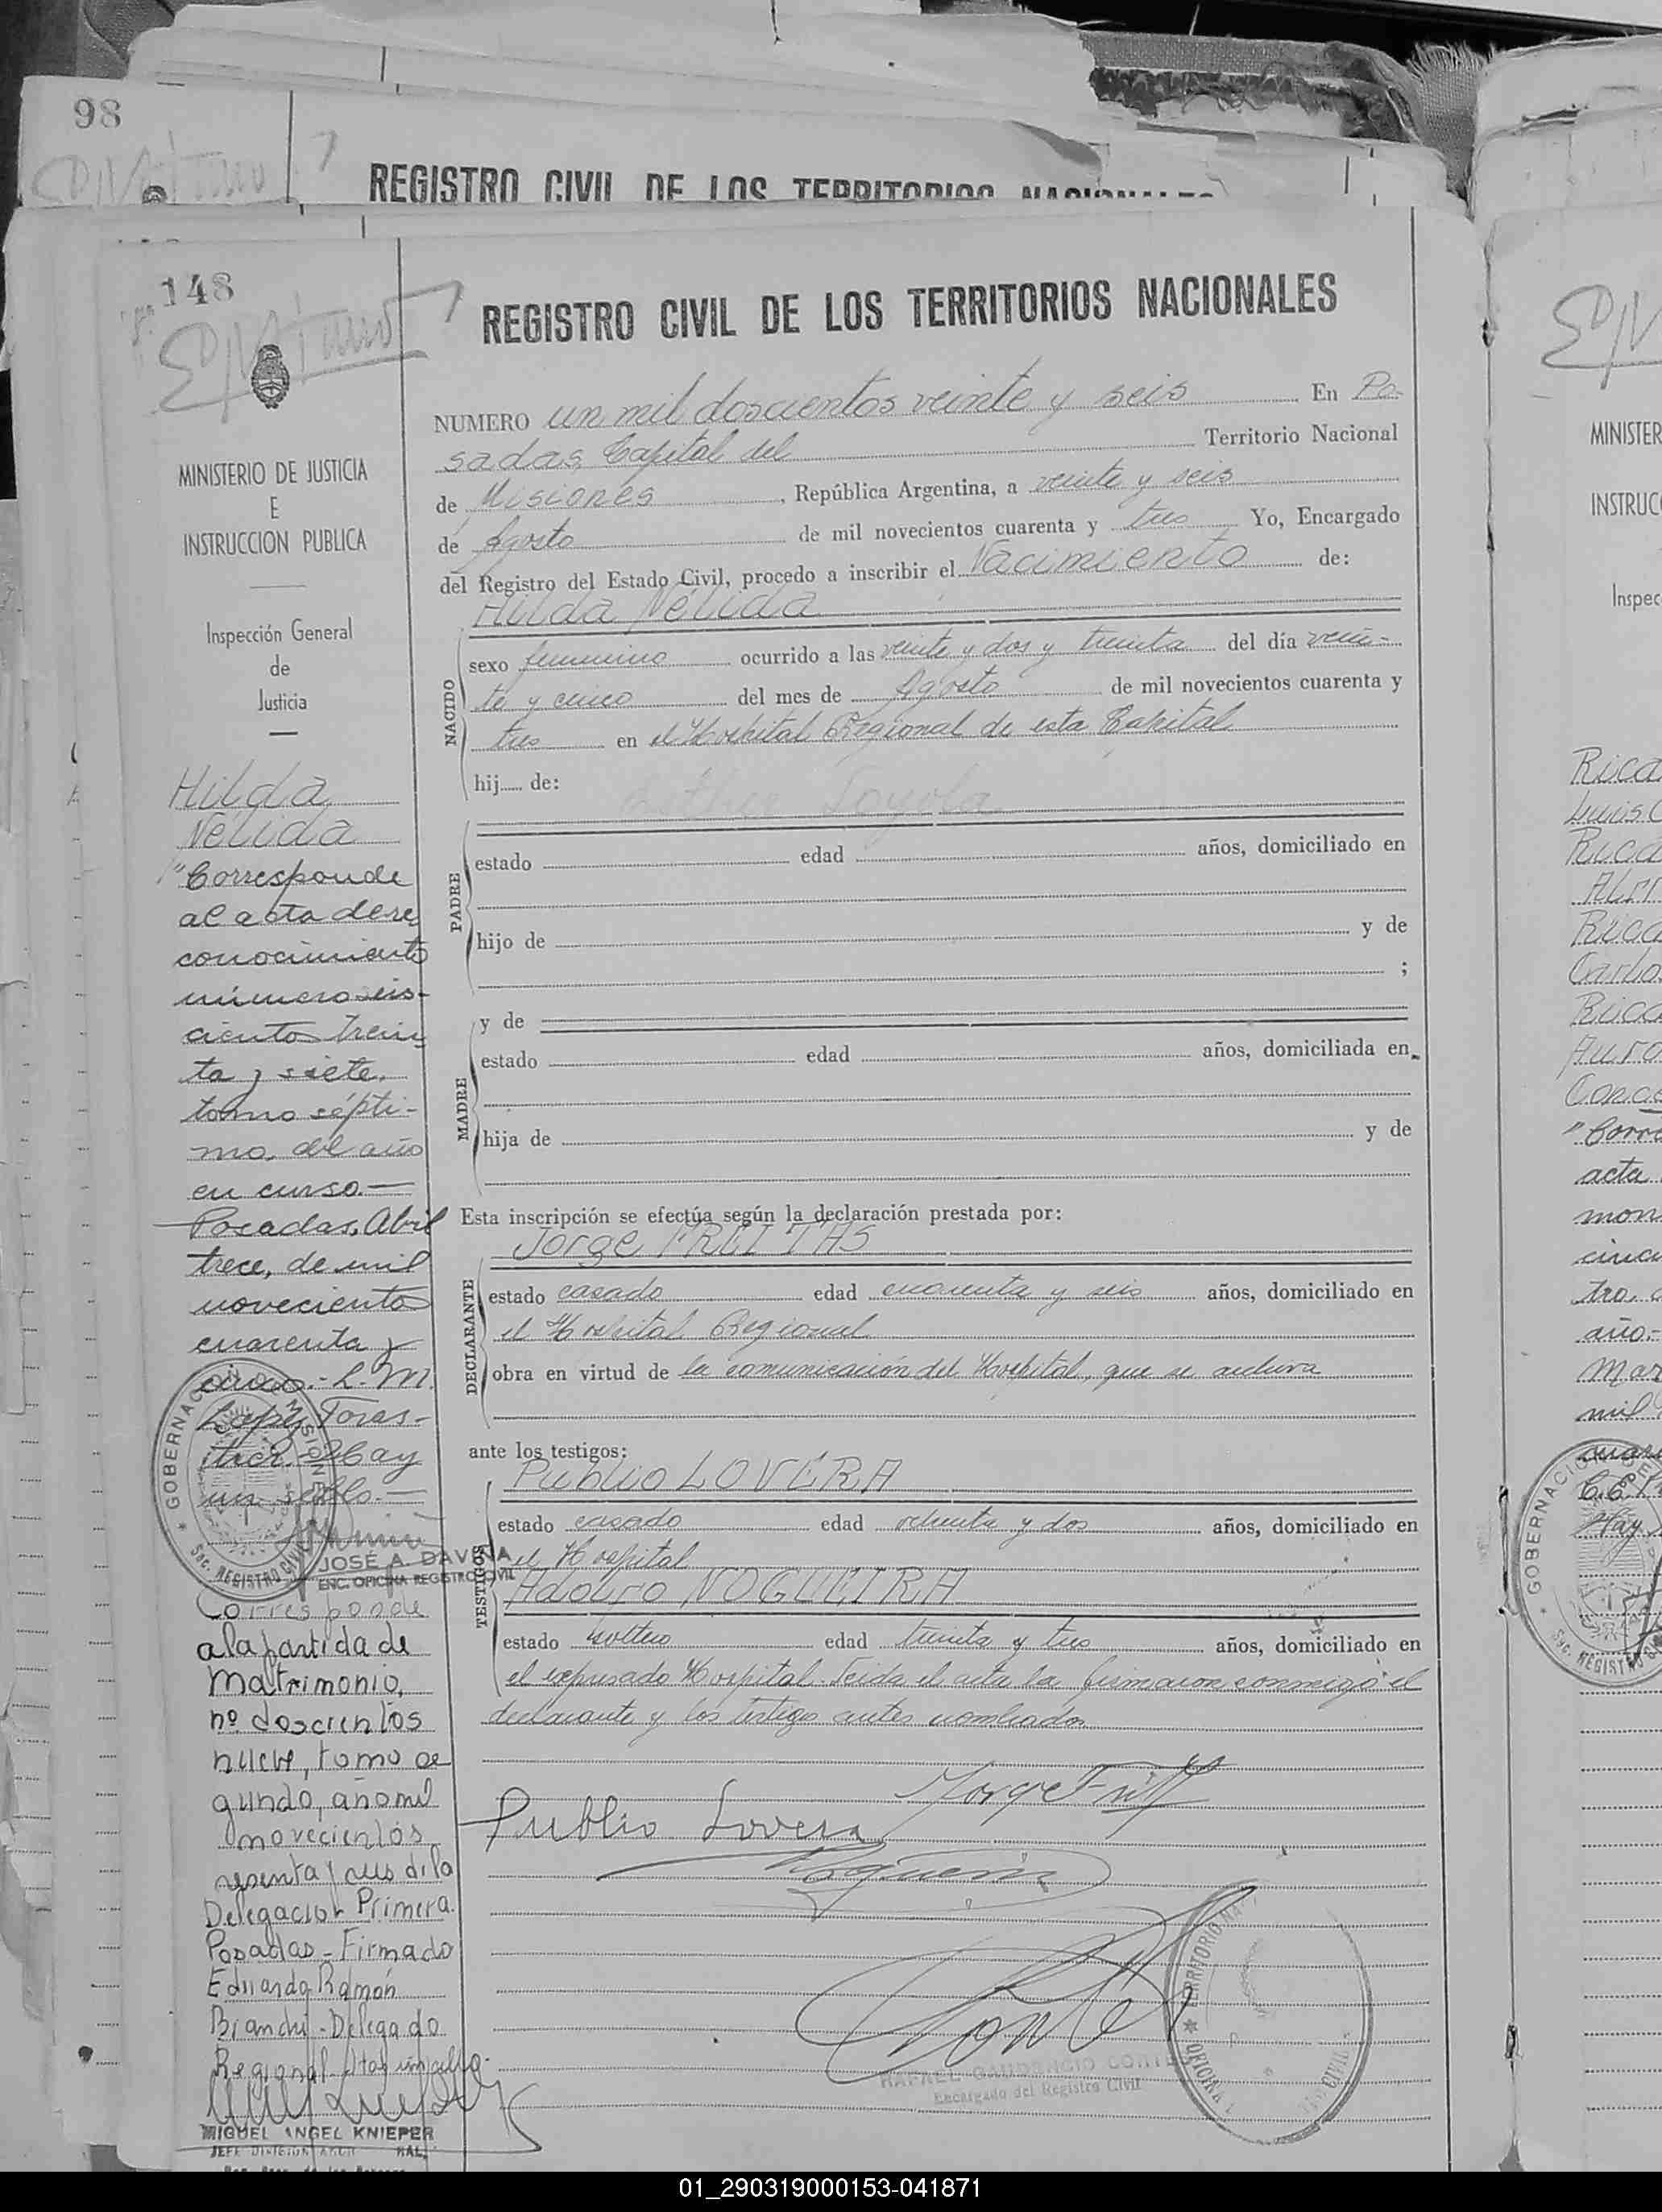 98
REGISTRO CIVIL DE LOS TERRITORIOS NACIONALES
148
REGISTRO CIVIL DE LOS TERRITORIOS NACIONALES
MINISTERIO DE JUSTICIA
E
INSTRUCCION PUBLICA
Inspección General
de
Justicia
Hilda
Nélida
"Corresponde
al acta de re
conocimiento
número seis-
cientos trein
ta y siete,
tomo sépti-
mo, del año
en curso.—
Posadas, Abril
trece, de mil
novecientos
cuarenta y
cinco.- L. M.
Lopez Torres-
Hay
un sello.—
GOBERNACION MISIONES
Sec. REGISTRO CIVIL
JOSÉ A. DAVEÑA
ENC. OFICINA REGISTRO CIVIL
Corresponde
a la partida de
Matrimonio,
nº doscientos
nueve, tomo se
gundo, año mil
novecientos
sesenta y seis de la
Delegación Primera.
Posadas - Firmado
Eduardo Ramón
Bianchi - Delegado
Regional - Hay un sello-
MIGUEL ANGEL KNIEPER
NUMERO un mil doscientos veinte y seis En Po-
sadas, Capital del Territorio Nacional
de Misiones, República Argentina, a veinte y seis
de Agosto de mil novecientos cuarenta y tres Yo, Encargado
del Registro del Estado Civil, procedo a inscribir el Nacimiento de:
Hilda Nélida
NACIDO
sexo femenino ocurrido a las veinte y dos y treinta del día vein-
te y cinco del mes de Agosto de mil novecientos cuarenta y
tres en el Hospital Regional de esta Capital
hij de:
Loyola
PADRE
estado edad años, domiciliado en
hijo de y de
;
MADRE
y de
estado edad años, domiciliada en
hija de y de
Esta inscripción se efectúa según la declaración prestada por:
Jorge FREITAS
DECLARANTE
estado casado edad cuarenta y seis años, domiciliado en
el Hospital Regional
obra en virtud de la comunicación del Hospital, que se archiva
ante los testigos:
Publio LOVERA
TESTIGOS
estado casado edad y dos años, domiciliado en
el Hospital
Adolfo NOGUEIRA
estado soltero edad treinta y tres años, domiciliado en
el expresado Hospital. Leida el acta la firmaron conmigo el
declarante y los testigos antes nombrados
Jorge
Publio Lovera
RAFAEL GAUDENCIO CORTES
Encargado del Registro Civil
MINISTER
INSTRUC
Inspec
"Corre
acta
01_290319000153-041871